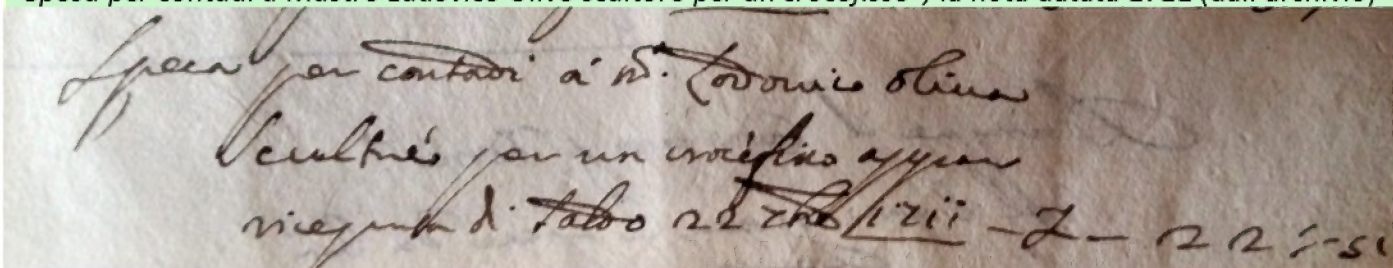 spesa per contadi a Mastro Ludovico Olive scultore per un crocefisso", la nota datata 1711 (dall'archivio)
Spesa per contadi á m. Lodovico oliua
Scultré per un crocéfisso appar
riceputa di 22 1711 - 22:-